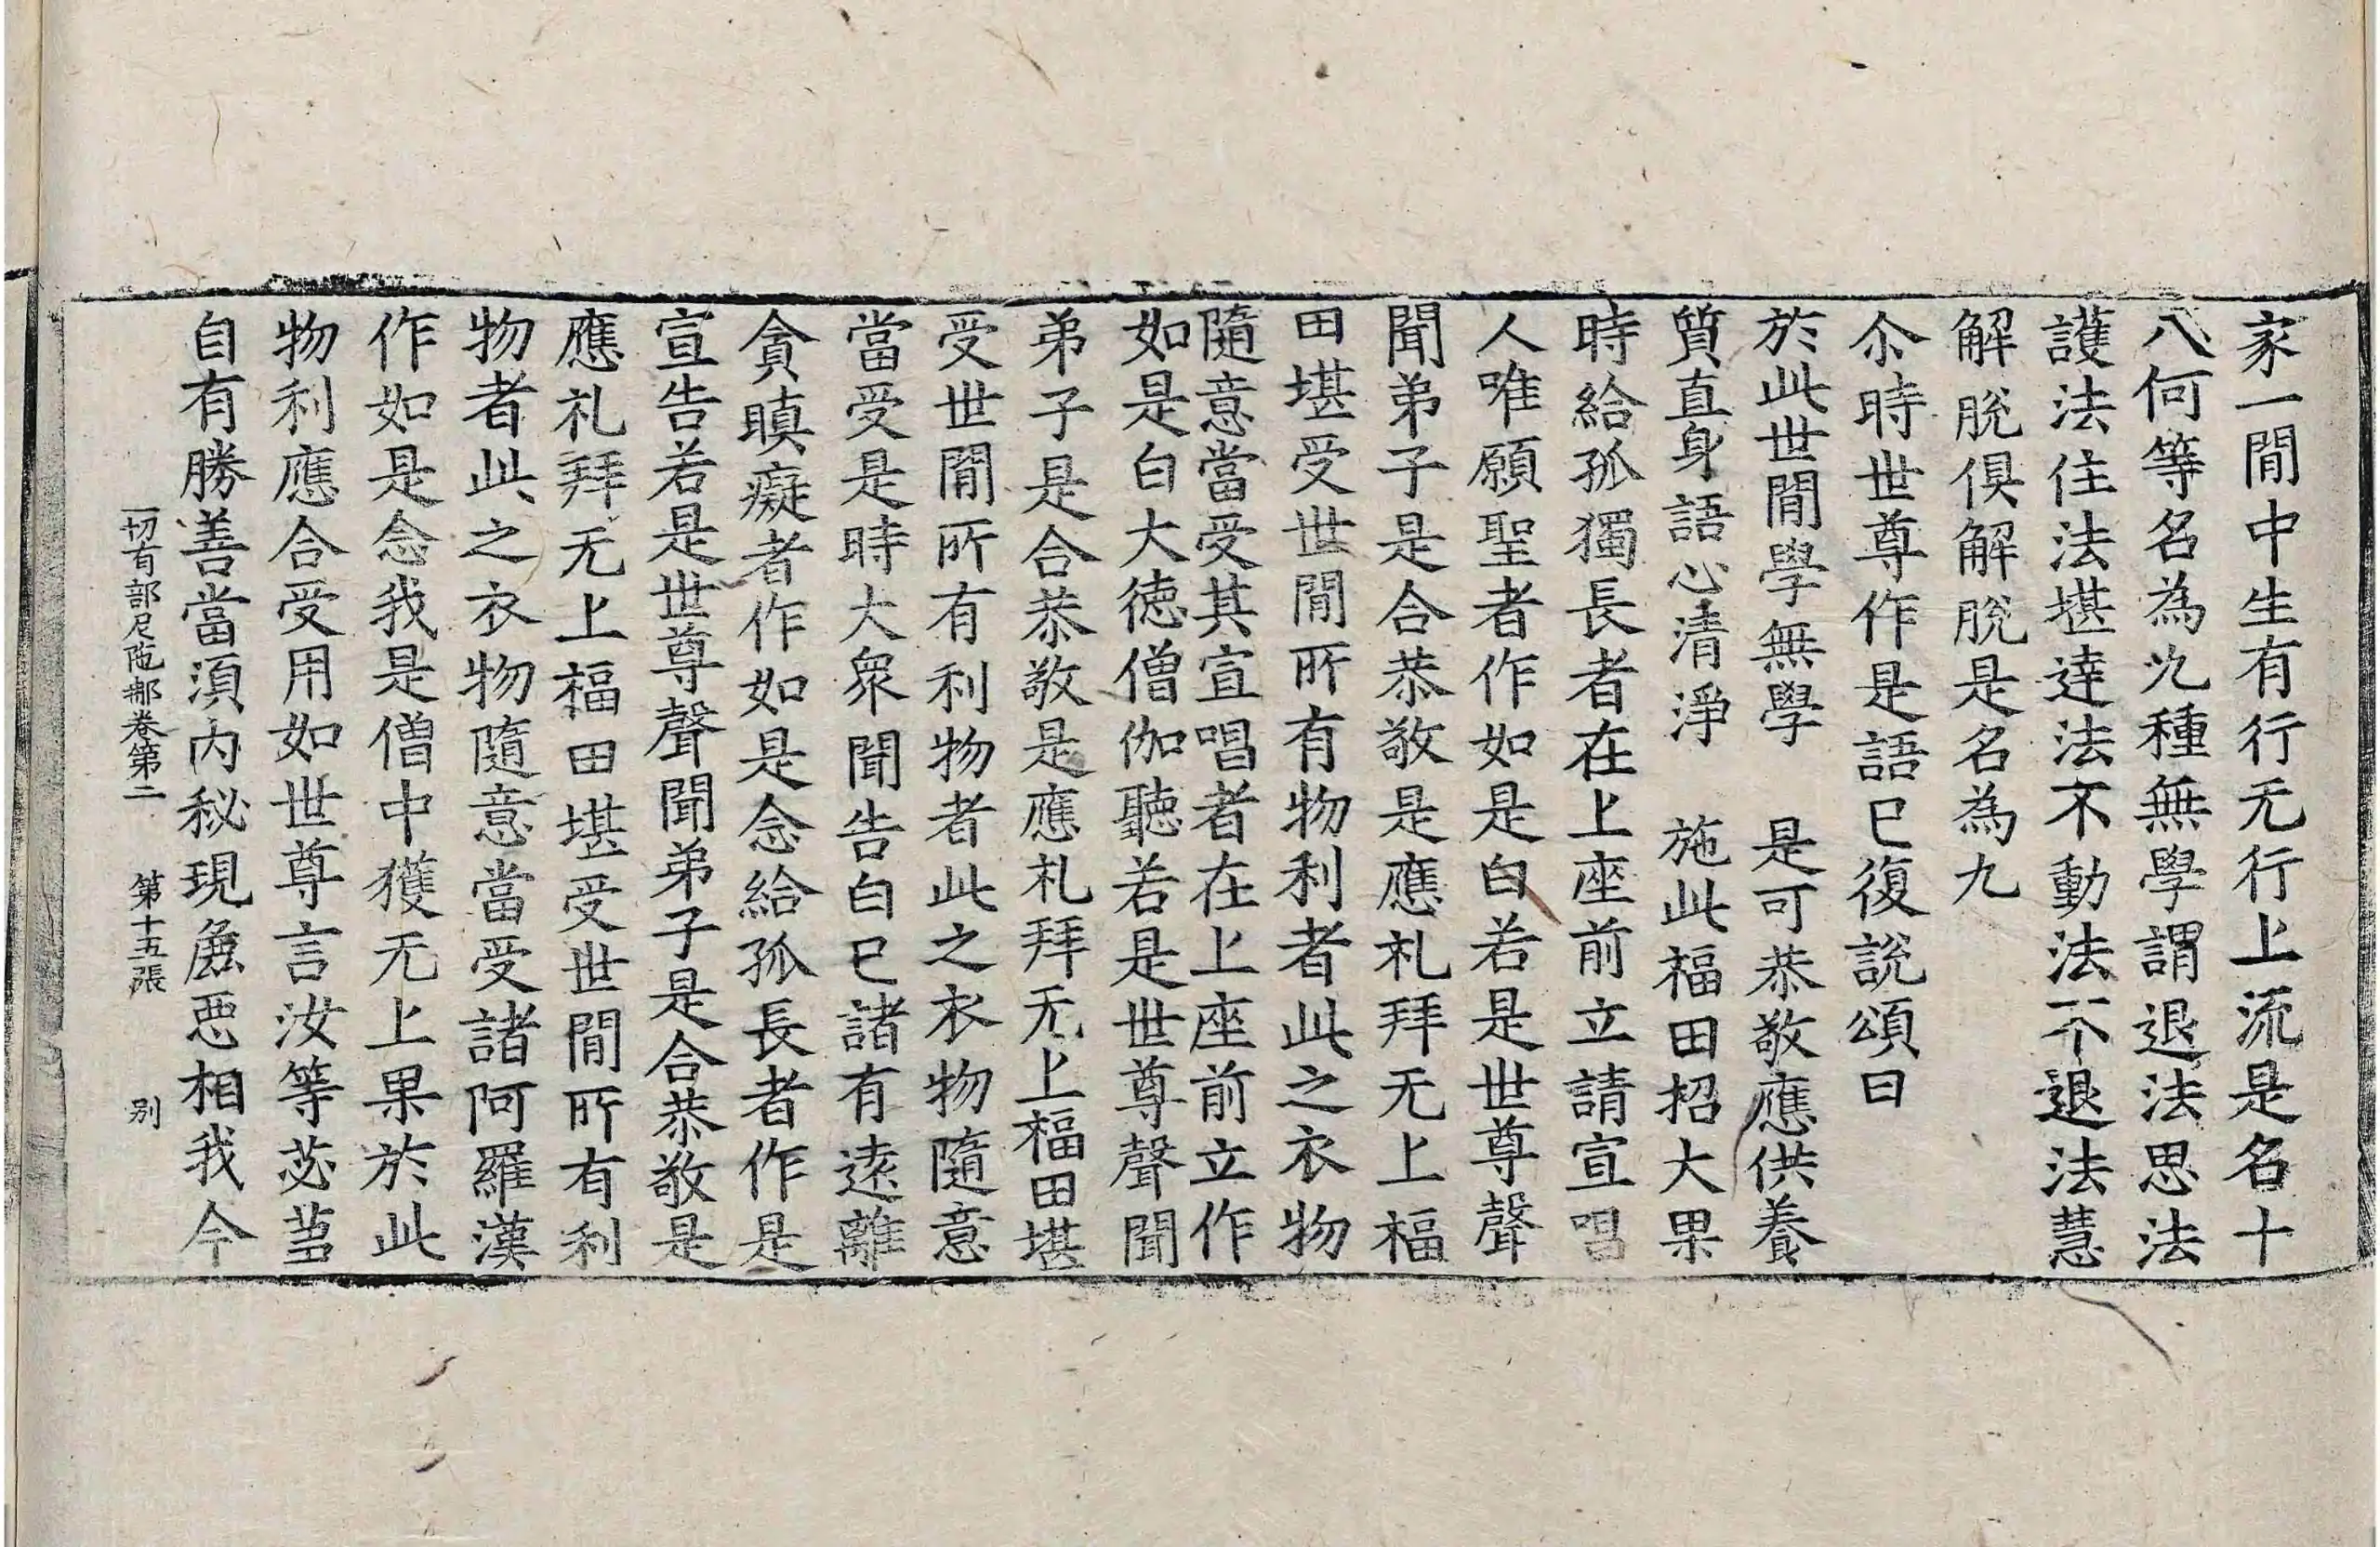 家一閒中生有行无行上流是名十
八何等名為九種無學謂退法思法
護法住法堪達法不動法不退法慧
解脫俱解脫是名為九
尒時世尊作是語已復說頌曰
於此世閒學無學　是可恭敬應供養
質直身語心清淨　施此福田招大果
時給孤獨長者在上座前立請宣唱
人唯願聖者作如是白若是世尊聲
聞弟子是合恭敬是應礼拜无上福
田堪受世閒所有物利者此之衣物
隨意當受其宣唱者在上座前立作
如是白大德僧伽聽若是世尊聲聞
弟子是合恭敬是應礼拜无上福田堪
受世閒所有利物者此之衣物隨意
當受是時大眾聞告白已諸有遠離
貪瞋癡者作如是念給孤長者作是
宣告若是世尊聲聞弟子是合恭敬是
應礼拜无上福田堪受世閒所有利
物者此之衣物隨意當受諸阿羅漢
作如是念我是僧中獲无上果於此
物利應合受用如世尊言汝等苾芻
自有勝善當須內秘現麁惡相我今
一切有部尼陁那卷第二　第十五張　別